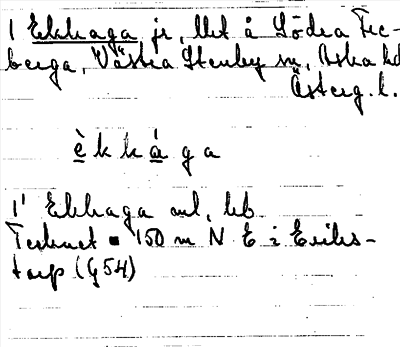 1 Ekhaga jr, llt å Södra Fre-
berga, Västra Stenby sn, Aska hd
Österg. l.
è k k á g a
1' Ekhaga ml, hb
Tecknet 150 m N E i Eriks-
torp (G54)